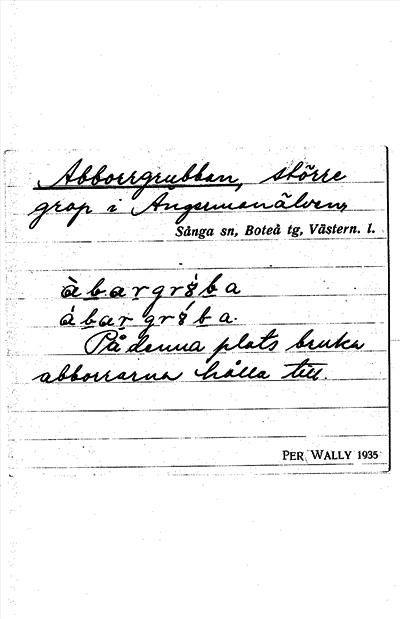 Abborrgrubban, större
grop i Ångermanälven,
Sånga sn, Boteå tg, Västern. l.
På denna plats bruka
abborrarna hålla till.
PER WALLY 1935